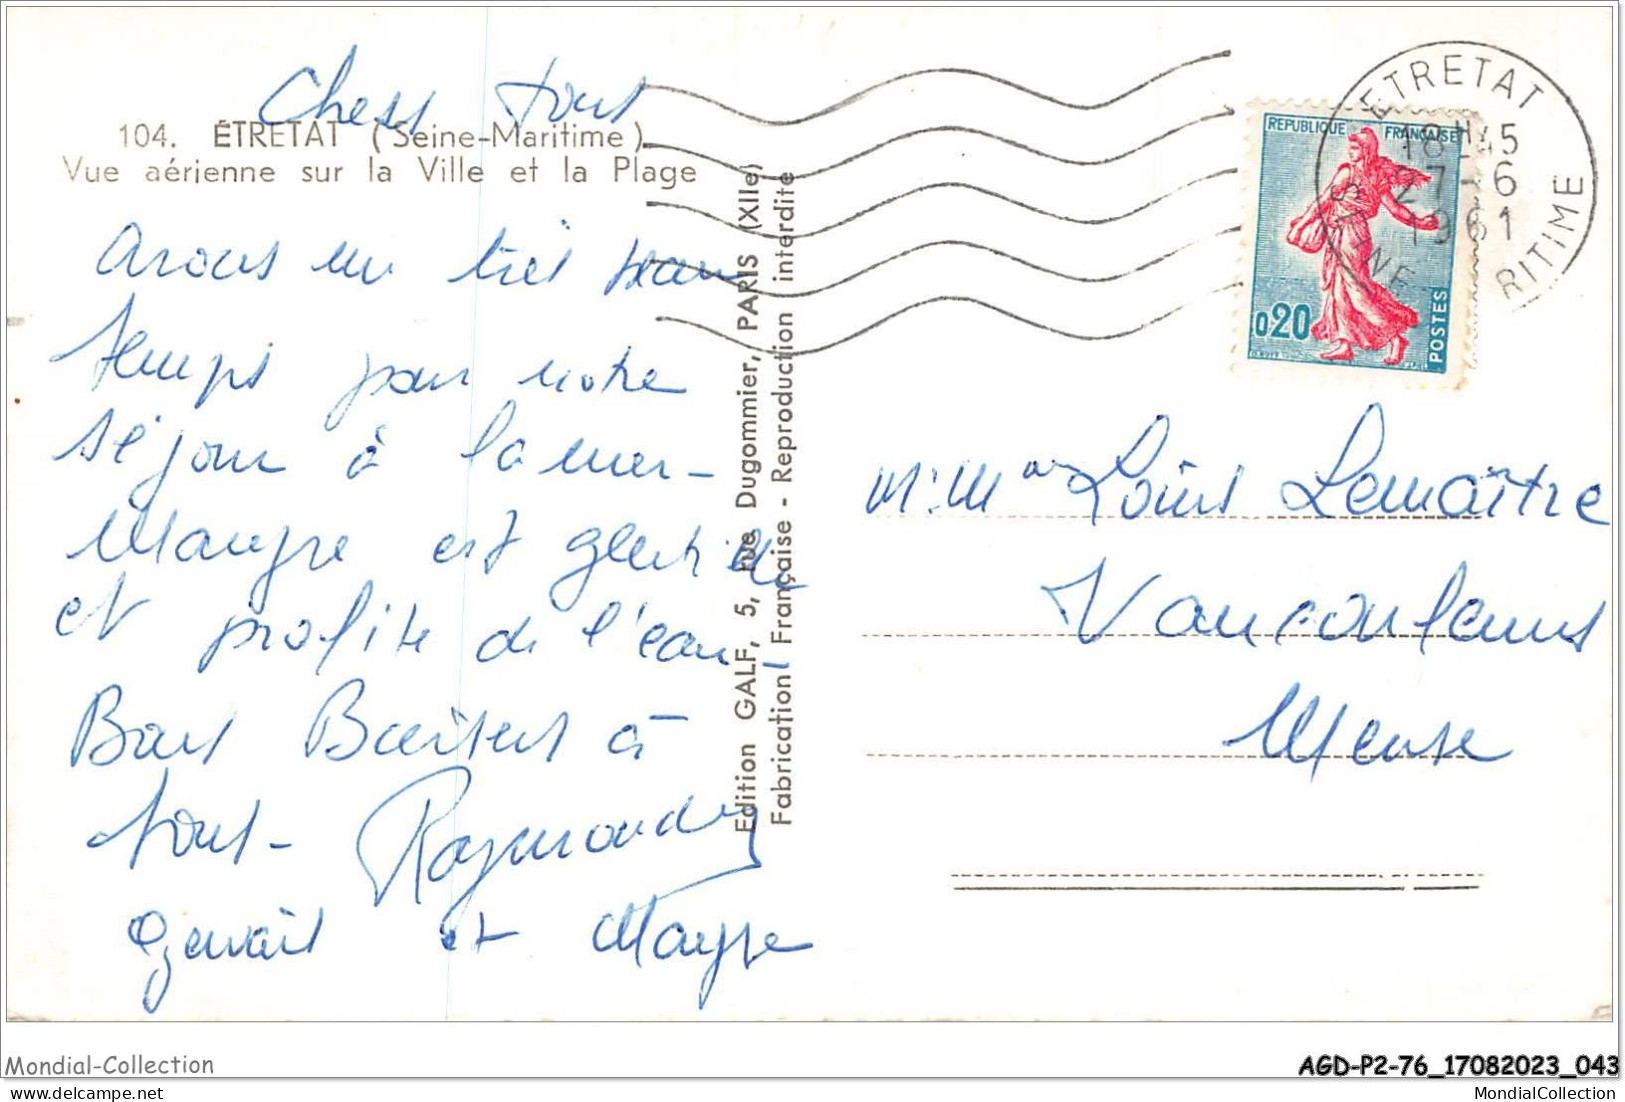 Chers tous
104. ÉTRETAT (Seine-Maritime)
Vue aérienne sur la Ville et la Plage
Avons un très beau
temps pour notre
séjour à la mer-
est gentille
et profite de l'eau-
Bons Baisers à
tous-
Raymonde,
et
Edition GALF, 5, rue Dugommier, PARIS (XIIe)
Fabrication Française - Reproduction interdite
REPUBLIQUE FRANÇAISE
0,20
POSTES
ETRETAT
18H45
27-6
1961
SEINE MARITIME
M. Mme Louis Lemaître
Vaucouleurs
Meuse
Mondial-Collection
AGD-P2-76_17082023_043
MondialCollection